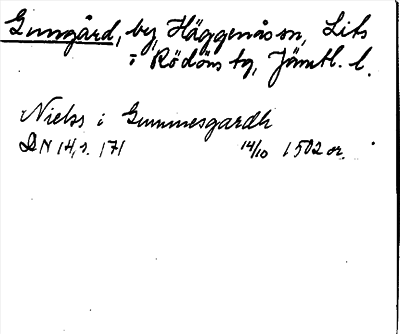 Gungård, by, Häggenås sn, Lits
i Rödöns tg, Jämtl. l.
Niels i Gummesgardh
DN 14, s. 171 14/10 1502 or.